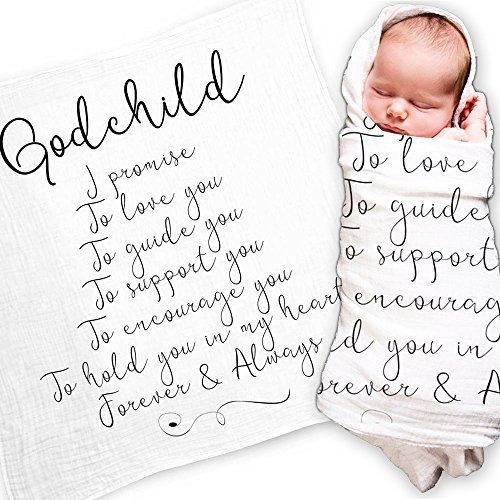 Godchild
I promise
To love you
To guide you
To support you
To encourage you
To hold you in my heart
Forever & Always
To love
To guide
To support
encourag
d you in
orever & Al